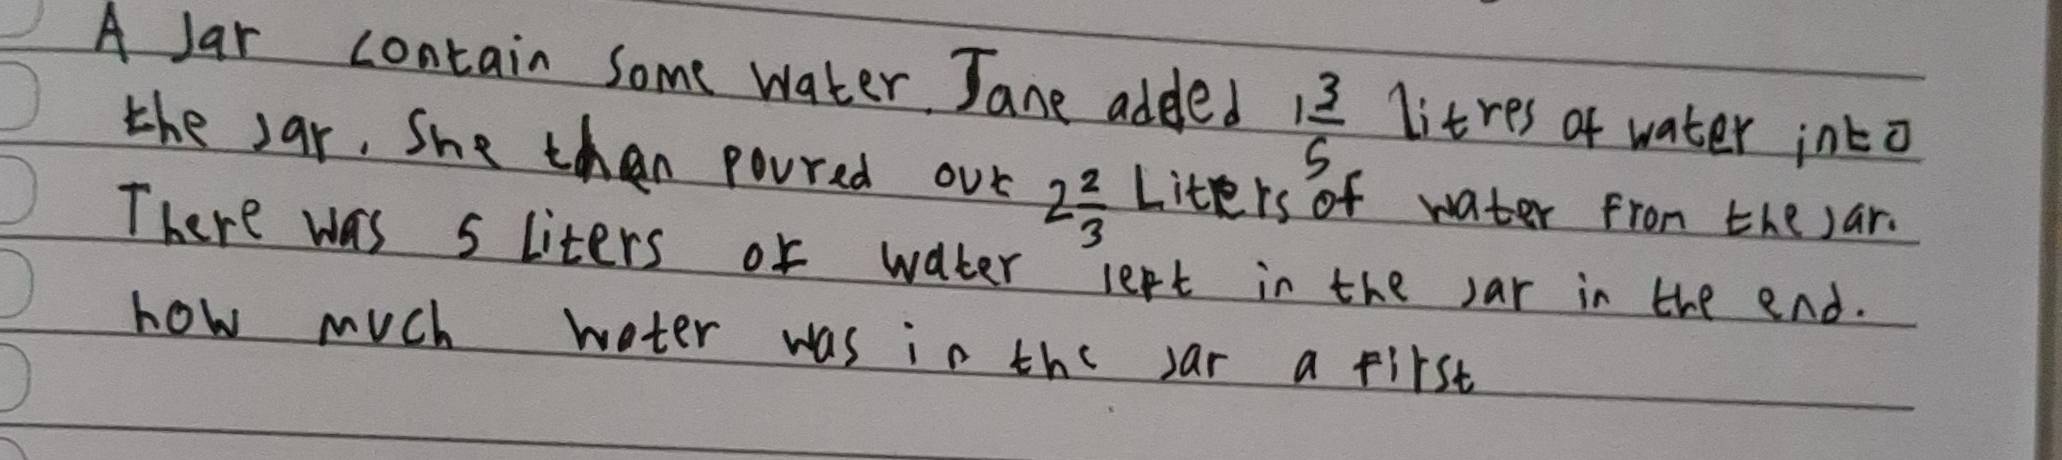 A Jar contain some water. Jane added 1 3/5 litres of water into
the jar. She then poured out 2 2/3 Liters of water from the jar.
There was 5 liters of water left in the jar in the end.
how much water was in the jar a first